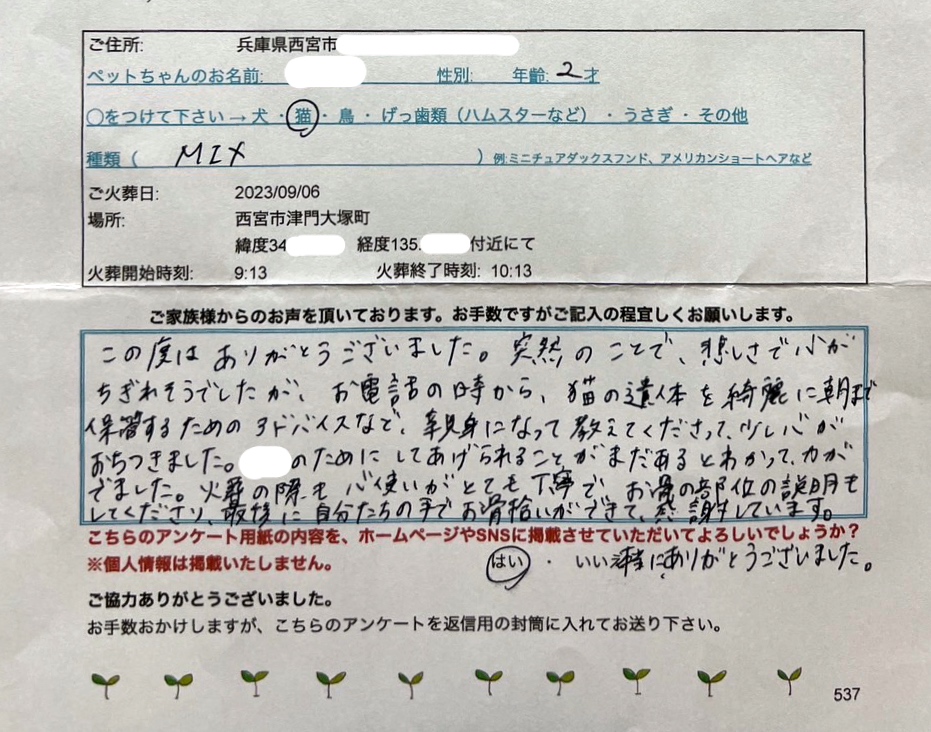 ご住所: 兵庫県西宮市
ペットちゃんのお名前: 性別: 年齢: 2才
〇をつけて下さい→犬・猫・鳥・げっ歯類（ハムスターなど）・うさぎ・その他
種類（ MIX ）例:ミニチュアダックスフンド、アメリカンショートヘアなど
ご火葬日: 2023/09/06
場所: 西宮市津門大塚町
緯度34 経度135. 付近にて
火葬開始時刻: 9:13 火葬終了時刻: 10:13
ご家族様からのお声を頂いております。お手数ですがご記入の程宜しくお願いします。
この度は ありがとうございました。突然の ことで、悲しさで心が
ちぎれそうでしたが、お電話の時から、猫の遺体を綺麗に朝まで
保管するための アドバイスなど、親身になって教えてくださって、少し心が
おちつきました。 のために してあげられることがまだあるとわかって、力が
でました。火葬の際も 心使いがとても丁寧で、お骨の部位の説明も
してくださり、最後に自分たちの手でお骨拾いができて、感謝しています。
こちらのアンケート用紙の内容を、ホームページやSNSに掲載させていただいてよろしいでしょうか？
※個人情報は掲載いたしません。 はい ・ いい にありがとうございました。
ご協力ありがとうございました。
お手数おかけしますが、こちらのアンケートを返信用の封筒に入れてお送り下さい。
537